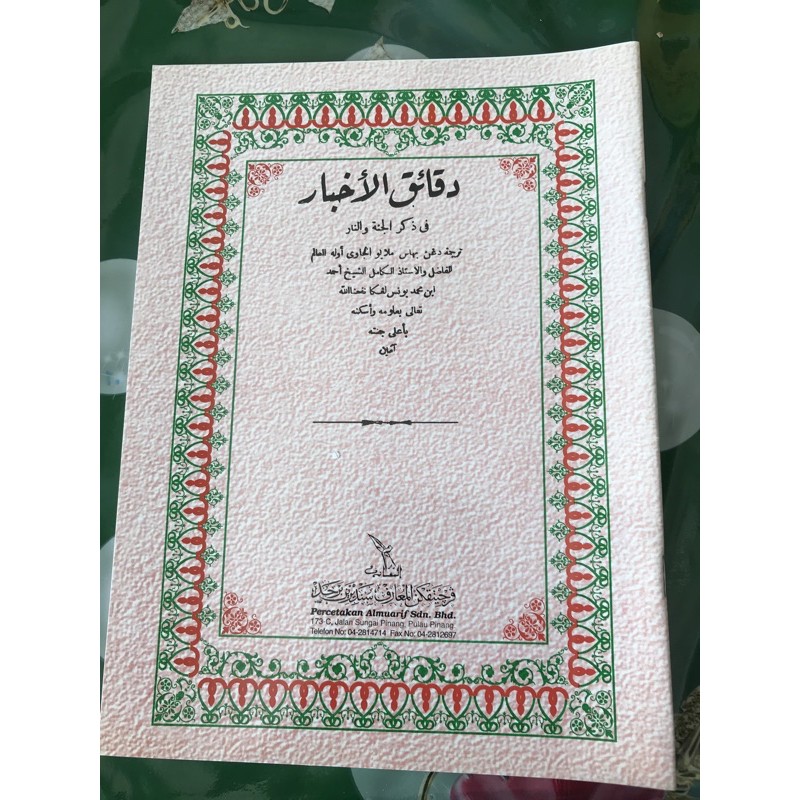 دقائق الأخبار
في ذكر الجنة والنار
ترجمة دغن بهاس ملايو الجاوى أوله العالم
الفاضل والأستاذ الكامل الشيخ أحمد
ابن محمد يونس لڠكا نفعنا الله
تعالى بعلومه وأسكنه
بأعلى جنته
آمين
المعارف
فرچيتقكن المعارف سنديرين برحد
Percetakan Almuarif Sdn. Bhd.
173-C, Jalan Sungai Pinang, Pulau Pinang.
Telefon No: 04-2814714 Fax No: 04-2812697